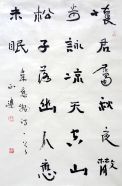 懷君屬秋夜散
步詠涼天空山
松子落幽人應
未眠
韋應物詩